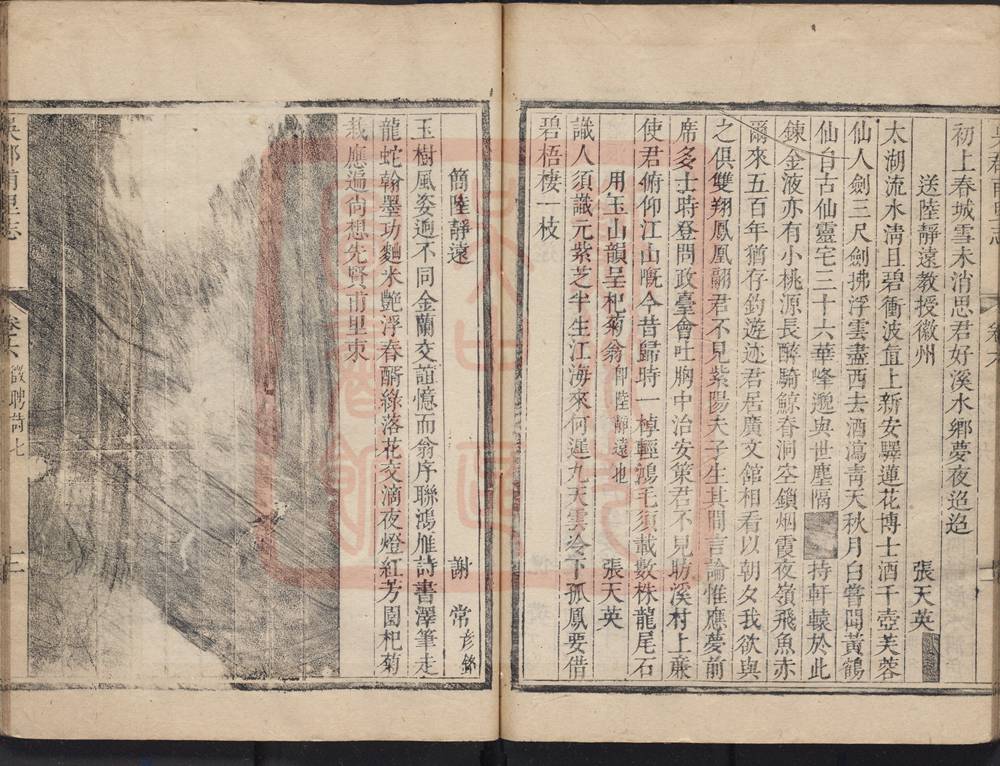 初上春城雪未消思君好溪水鄉夢夜迢迢
送陸靜遠教授徽州
張天英
太湖流水淸且碧衝波直上新安驛蓮花博士酒千壺芙蓉
仙人劍三尺劍拂浮雲盡西去酒瀉靑天秋月白嘗聞黃鶴
仙台古仙靈宅三十六華峰邈與世塵隔 持軒轅於此
鍊金液亦有小桃源長醉騎鯨春洞空鎖烟霞夜嶺飛魚赤
爾來五百年猶存釣遊迹君居廣文舘相看以朝夕我欲與
之俱雙翔鳳凰翮君不見紫陽夫子生其間言論惟應夢前
席多士時登問政臺會吐胸中治安策君不見昉溪村上兼
使君俯仰江山慨今昔歸時一棹輕鴻毛須載數株龍尾石
用玉山韻呈杞菊翁卽陸靜遠也
張天英
識人須識元紫芝半生江海來何遲九天雲冷下孤鳳要借
碧梧棲一枝
吳郡甫里志
卷六
徵聘
七
簡陸靜遠
謝常彥銘
玉樹風姿逈不同金蘭交誼憶而翁序聯鴻雁詩書澤筆走
龍蛇翰墨功麯米艷浮春酭綠落花交滴夜燈紅芳園杞菊
栽應遍尙想先賢甫里東